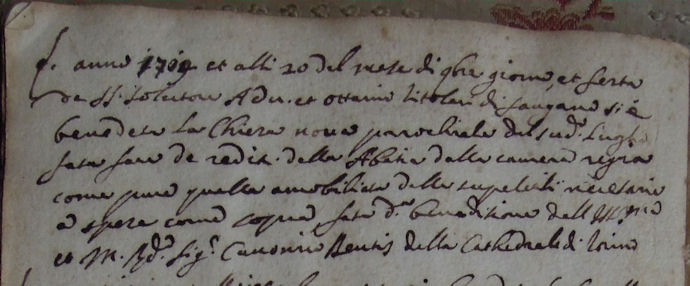 anno 1702 et alli 20 del mese di 9bre giorno et festa
de SS. Solutore Adv. et ottavio titolari di sangano si è
benedeta la Chiesa nova parochiale del sud.o Luogo
fata fare de redit. della Abatia dalla camera regia
come pure quella amobiliata delle supeletili necesarie
a spese come sopra fata d.a beneditione dall
et M. Rd.o Sig.r Canonico della Cathedrale di Torino